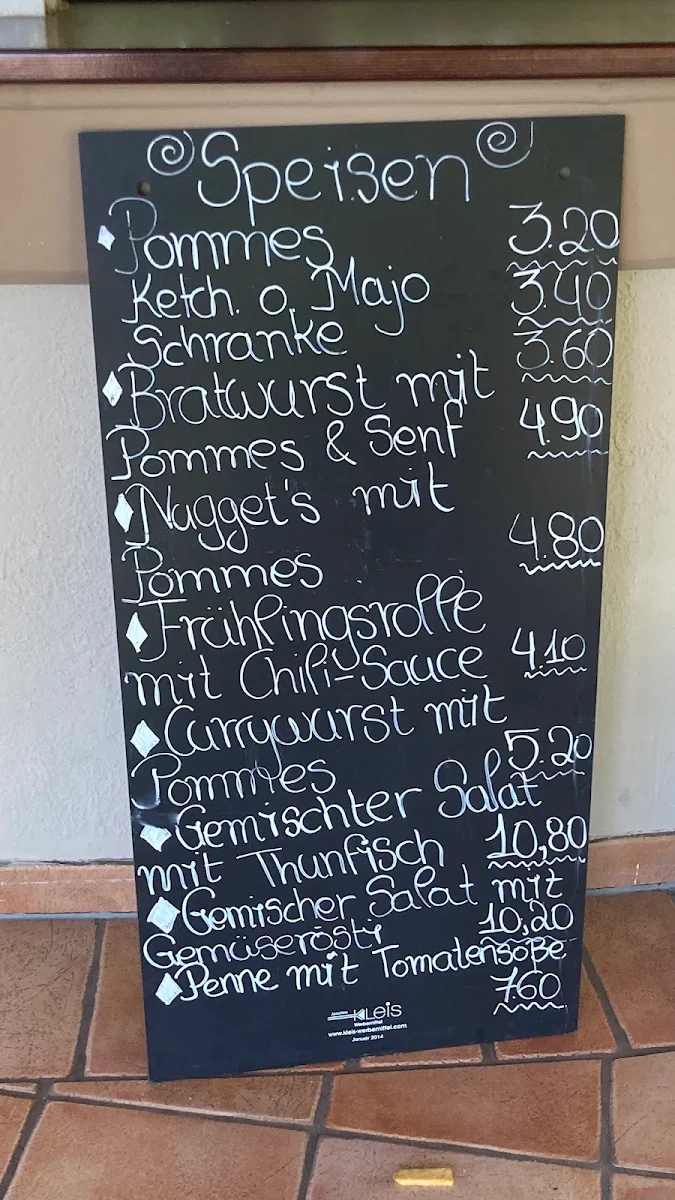 Speisen
Pommes 3.20
Ketch. o. Majo 3.40
Schranke 3.60
Bratwurst mit
Pommes & Senf 4.90
Nugget's mit
Pommes 4.80
Frühlingsrolle
mit Chili-Sauce 4.10
Currywurst mit
Pommes 5.20
Gemischter Salat
mit Thunfisch 10,80
Gemischer Salat mit
Gemüserösti 10,20
Penne mit Tomatensoße
7.60
KLeis
Werbemittel
www.kleis-werbemittel.com
Januar 2014